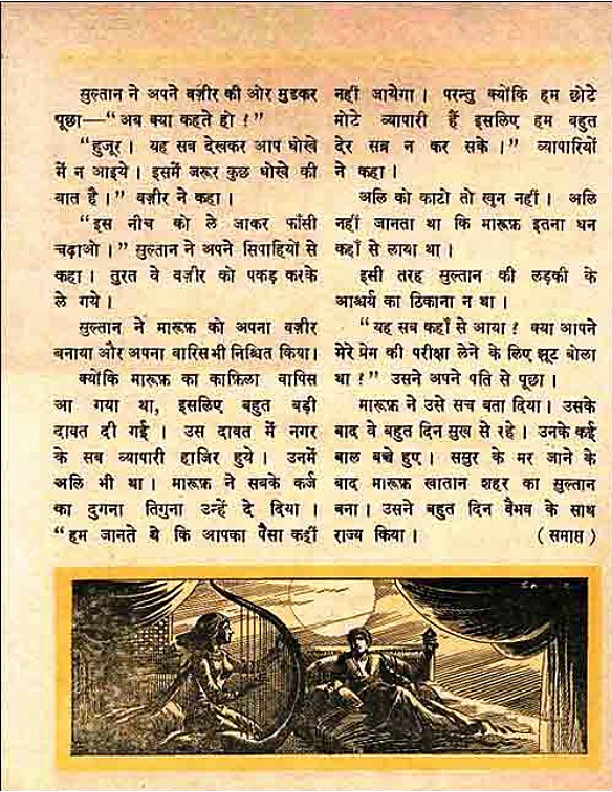 सुल्तान ने अपने वज़ीर की ओर मुडकर
पूछा—“अब क्या कहते हो?”
“हुजूर। यह सब देखकर आप धोखे
में न आइये। इसमें जरूर कुछ धोखे की
बात है।” वज़ीर ने कहा।
“इस नीच को ले जाकर फाँसी
चढ़ाओ।” सुल्तान ने अपने सिपाहियों से
कहा। तुरत वे वज़ीर को पकड़ करके
ले गये।
सुल्तान ने मारूफ़ को अपना वज़ीर
बनाया और अपना वारिस भी निश्चित किया।
क्योंकि मारूफ़ का काफ़िला वापिस
आ गया था, इसलिए बहुत बड़ी
दावत दी गई। उस दावत में नगर
के सब व्यापारी हाजिर हुये। उनमें
अलि भी था। मारूफ़ ने सबके कर्ज
का दुगना तिगुना उन्हें दे दिया।
“हम जानते थे कि आपका पैसा कहीं
नहीं जायेगा। परन्तु क्योंकि हम छोटे
मोटे व्यापारी हैं इसलिए हम बहुत
देर सब्र न कर सके।” व्यापारियों
ने कहा।
अलि को काटो तो खून नहीं। अलि
नहीं जानता था कि मारूफ़ इतना धन
कहाँ से लाया था।
इसी तरह सुल्तान की लड़की के
आश्चर्य का ठिकाना न था।
“यह सब कहाँ से आया? क्या आपने
मेरे प्रेम की परीक्षा लेने के लिए झूट बोला
था?” उसने अपने पति से पूछा।
मारूफ़ ने उसे सच बता दिया। उसके
बाद वे बहुत दिन सुख से रहे। उनके कई
बाल बच्चे हुए। ससुर के मर जाने के
बाद मारूफ़ खातान शहर का सुल्तान
बना। उसने बहुत दिन वैभव के साथ
राज्य किया। (समाप्त)